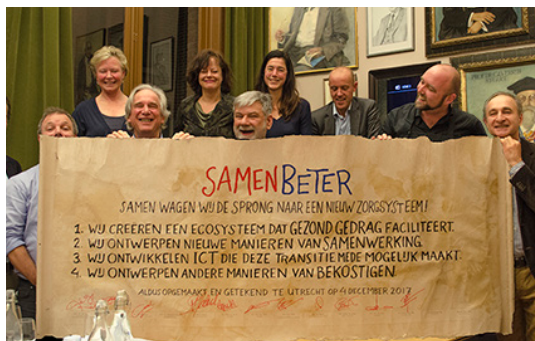 SAMENBETER
SAMEN WAGEN WIJ DE SPRONG NAAR EEN NIEUW ZORGSYSTEEM!
1. WIJ CREËREN EEN ECOSYSTEEM DAT GEZOND GEDRAG FACILITEERT.
2. WIJ ONTWERPEN NIEUWE MANIEREN VAN SAMENWERKING.
3. WIJ ONTWIKKELEN ICT DIE DEZE TRANSITIE MEDE MOGELIJK MAAKT.
4. WIJ ONTWERPEN ANDERE MANIEREN VAN BEKOSTIGEN.
ALDUS OPGEMAAKT EN GETEKEND TE UTRECHT OP 4 DECEMBER 2017